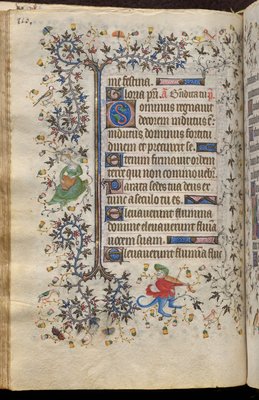 me festina.
Gloria pri. A
Dominus regnauit
decorem indutus est
indutus dominus fortitu
dinem et precinxit se.
Etenim firmauit orbem
terre qui non commouebit.
Parata sedes tua deus ex
tunc a seculo tu es.
Eleuauerunt flumina
domine eleuauerunt flumina
uocem suam.
Eleuauerunt flumina fluc